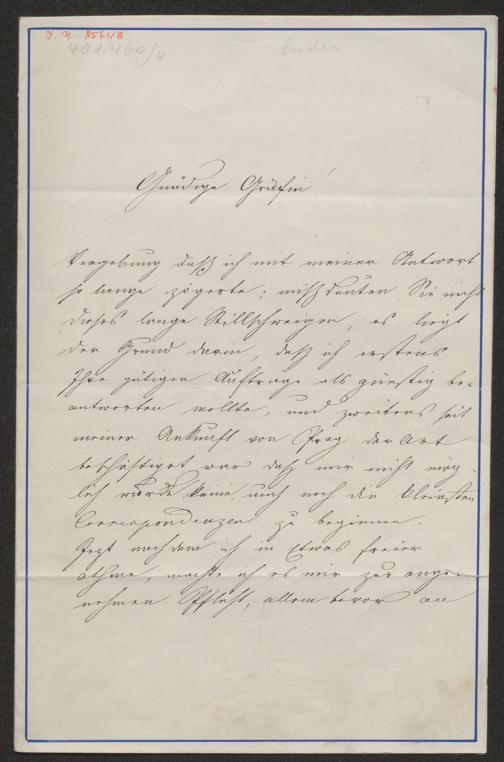 I. N. 85648
401.469/4
Ander
59
Gnädige Gräfin!
Vergebung daß ich mit meiner Antwort
so lange zögerte; mißdeuten Sie nicht
dieses lange Stillschweigen, es liegt
der Grund darin, daß ich erstens
Ihre gütigen Aufträge als günstig be-
antworten wollte, und zweitens seit
meiner Ankunft von Prag der Art
beschäftiget war daß mir nicht mög-
lich wurde auch noch die kleinsten
Correspondenzen zu beginnen.
Jezt nachdem ich in Etwas freier
athme, mache ich es mir zur ange-
nehmen Pflicht, allem bevor an